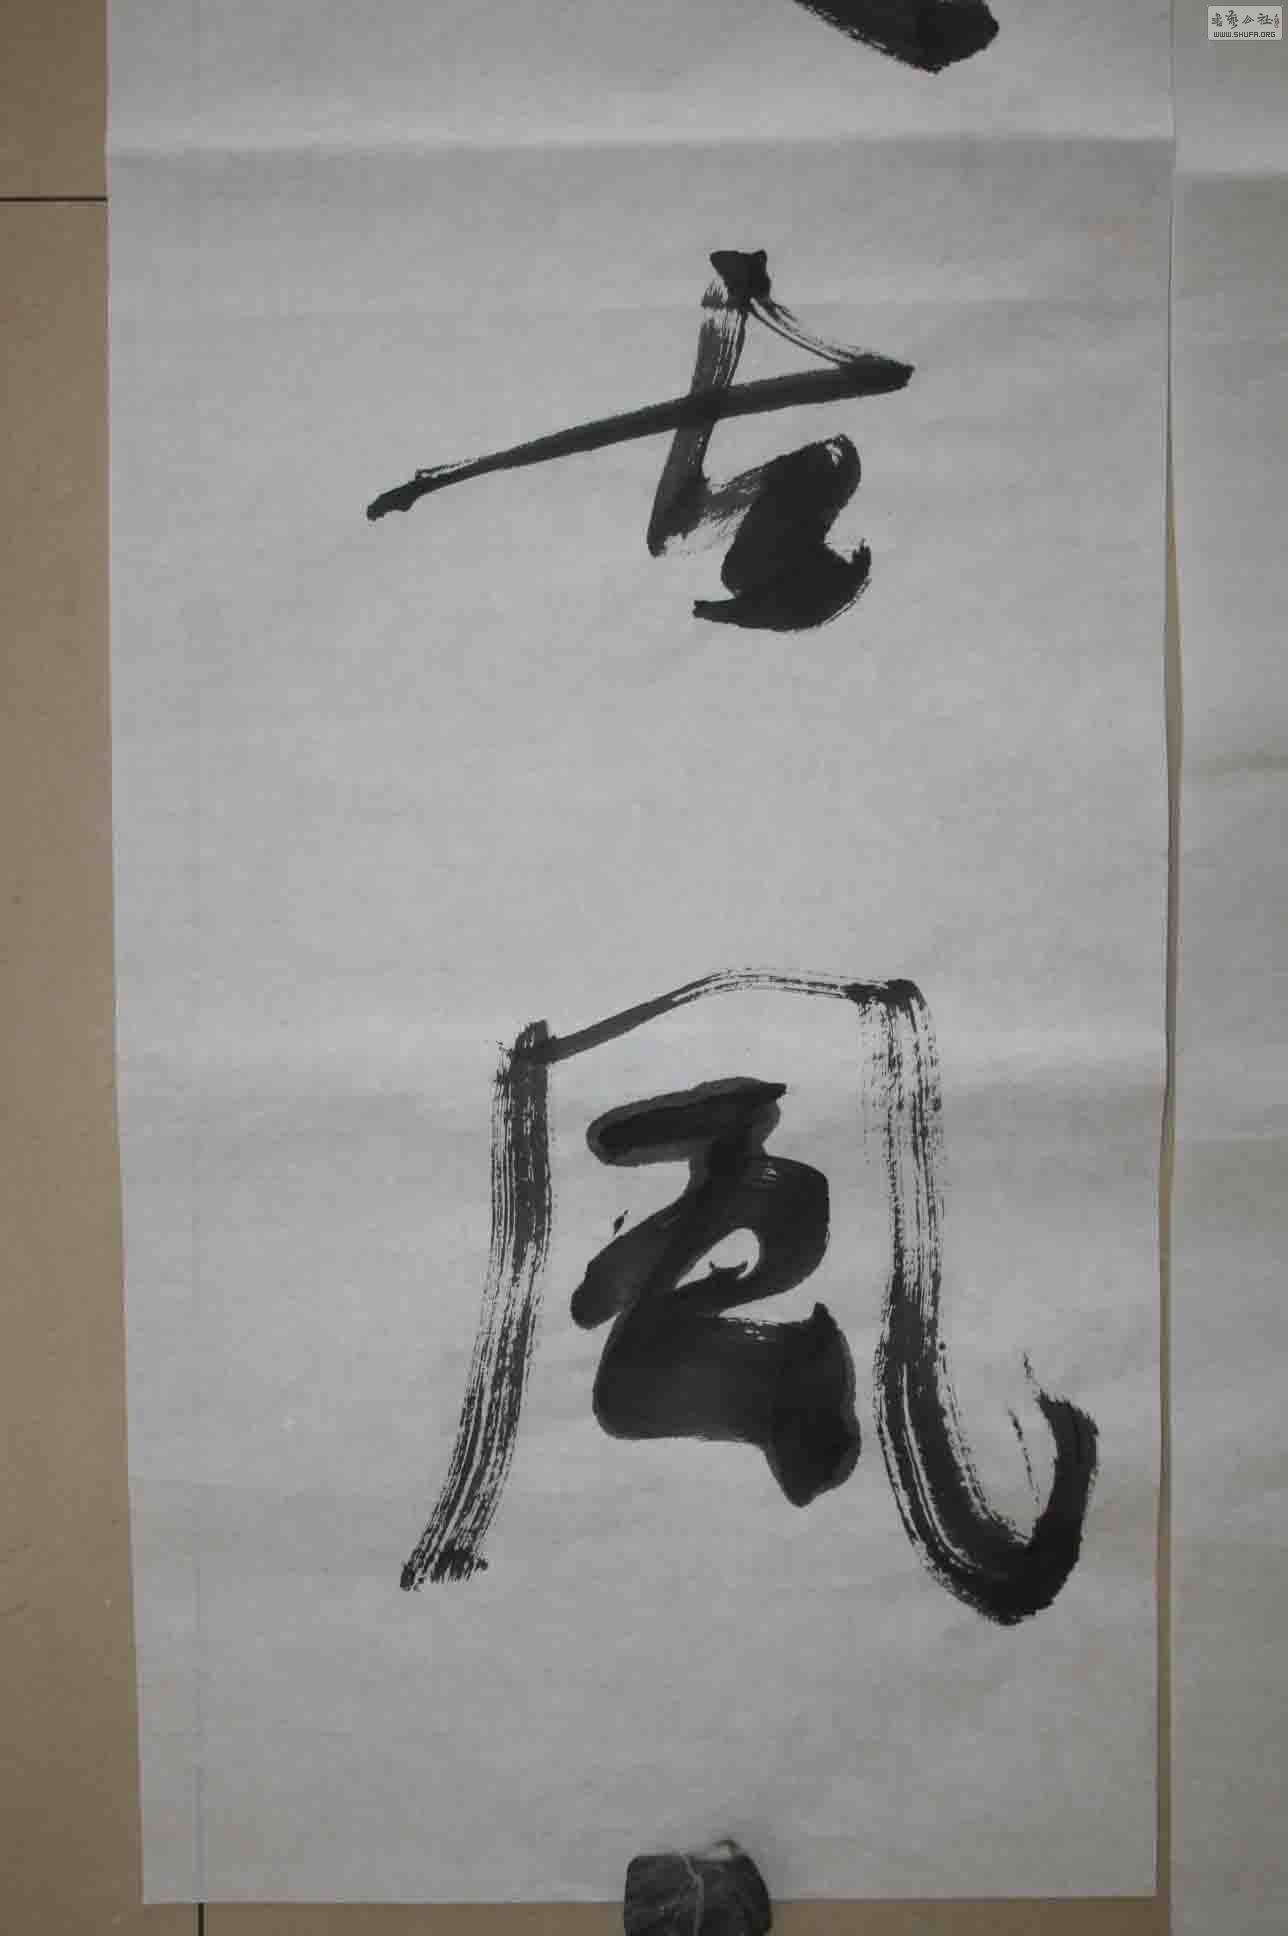 古風
书艺公社
WWW.SHUFA.ORG